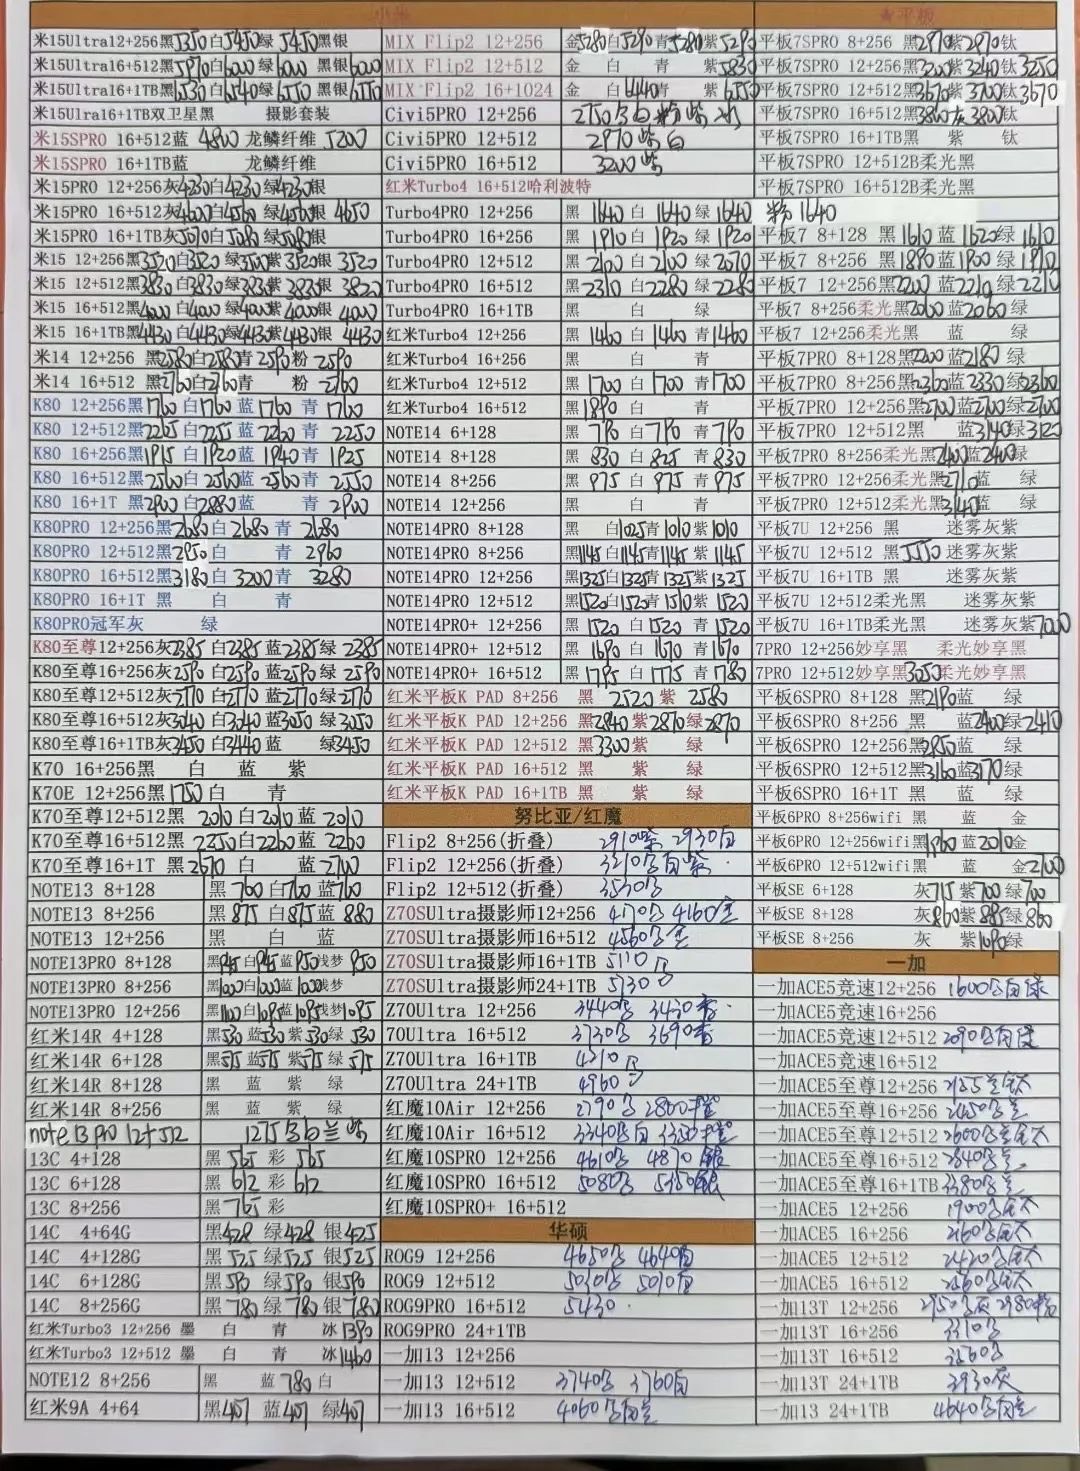 小米
米15Ultra12+256黑5350白5450绿5450黑银
米15Ultra16+512黑5970白6000绿6000黑银6000
米15Ultra16+1TB黑6530白6540绿6550黑银6550
米15Ulra16+1TB双卫星黑 摄影套装
米15SPRO 16+512蓝 4800 龙鳞纤维 5200
米15SPRO 16+1TB蓝 龙鳞纤维
米15PRO 12+256灰4230白4230绿4230银
米15PRO 16+512灰4600白4560绿4560银 4650
米15PRO 16+1TB灰5070白5080绿5080银
米15 12+256黑3520白3520绿3500紫3520银 3520
米15 12+512黑3830白3830绿3835紫3830银 3820
米15 16+512黑4000白4000绿4000紫4000银 4000
米15 16+1TB黑4430白4430绿4430紫4430银 4430
米14 12+256 黑2580白2580青2590粉2590
米14 16+512 黑2760白2760青 粉 2760
K80 12+256黑1760白1760蓝 1760 青 1760
K80 12+512黑2265白2255蓝 2260 青 2250
K80 16+256黑1915白1920蓝 1940青 1925
K80 16+512黑2560白2560蓝 2560青 2550
K80 16+1T 黑2900白2880蓝 青 2900
K80PRO 12+256黑2680白2680 青 2680
K80PRO 12+512黑2950白 青 2960
K80PRO 16+512黑3180白 3200青 3280
K80PRO 16+1T 黑 白 青
K80PRO冠军灰 绿
K80至尊12+256灰2385白2385蓝2385绿 2385
K80至尊16+256灰2590白2590蓝2590绿 2590
K80至尊12+512灰2770白2770蓝2770绿2770
K80至尊16+512灰3040白3040蓝3050绿 3050
K80至尊16+1TB灰3450白3440蓝 绿3450
K70 16+256黑 白 蓝 紫
K70E 12+256黑1750白 青
K70至尊12+512黑 2010白2010蓝 2010
K70至尊16+512黑 2250白2260蓝 2260
K70至尊16+1T 黑2670白 蓝 2700
NOTE13 8+128 黑 760白760蓝760
NOTE13 8+256 黑 875白875蓝 880
NOTE13 12+256 黑 白 蓝
NOTE13PRO 8+128 黑945白945蓝950浅梦 950
NOTE13PRO 8+256 黑1000白1000蓝1000浅梦
NOTE13PRO 12+256 黑1100白1095蓝1095浅梦1095
红米14R 4+128 黑530蓝530紫530绿 530
红米14R 6+128 黑575蓝575紫575绿 575
红米14R 8+128 黑 蓝 紫 绿
红米14R 8+256 黑 蓝 紫 绿
note13pro 12+512 1275黑白兰紫
13C 4+128 黑 565 彩 565
13C 6+128 黑 612 彩 612
13C 8+256 黑 765 彩
14C 4+64G 黑428 绿428 银425
14C 4+128G 黑 525绿525 银525
14C 6+128G 黑 590绿590 银590
14C 8+256G 黑 780绿 780银 780
红米Turbo3 12+256 墨 白 青 冰1390
红米Turbo3 12+512 墨 白 青 冰1460
NOTE12 8+256 黑 蓝 780白
红米9A 4+64 黑407 蓝407 绿407
MIX Flip2 12+256 金5280白5290青5280紫5290
MIX Flip2 12+512 金 白 青 紫5830
MIX Flip2 16+1024 金 白6440青 紫6550
Civi5PRO 12+256 2750
Civi5PRO 12+512 2970紫白
Civi5PRO 16+512 3200紫
红米Turbo4 16+512哈利波特
Turbo4PRO 12+256 黑 1640白 1640绿 1640 粉1640
Turbo4PRO 16+256 黑 1910白 1920绿 1920
Turbo4PRO 12+512 黑 2100白 2100绿 2070
Turbo4PRO 16+512 黑 2310白 2280绿 2280
Turbo4PRO 16+1TB 黑 白 绿
红米Turbo4 12+256 黑 1460白 1460青1460
红米Turbo4 16+256 黑 白 青
红米Turbo4 12+512 黑 1700白 1700青1700
红米Turbo4 16+512 黑1890白 青
NOTE14 6+128 黑 790白790青790
NOTE14 8+128 黑 830白 825青 830
NOTE14 8+256 黑 975白 975青 975
NOTE14 12+256 黑 白 青
NOTE14PRO 8+128 黑 白1025青1010紫1010
NOTE14PRO 8+256 黑1145白1145青1145紫1145
NOTE14PRO 12+256 黑1325白1325青1325紫1325
NOTE14PRO 12+512 黑1520白1520青1510紫1520
NOTE14PRO+ 12+256 黑 1520白1520青1520
NOTE14PRO+ 12+512 黑 1690白 1670青1670
NOTE14PRO+ 16+512 黑 1795白 1775青 1780
红米平板K PAD 8+256 黑 2520 紫 2580
红米平板K PAD 12+256 黑2840紫2870绿2870
红米平板K PAD 12+512 黑3300紫 绿
红米平板K PAD 16+512 黑 紫 绿
红米平板K PAD 16+1TB 黑 紫 绿
努比亚/红魔
Flip2 8+256(折叠) 2910 2930白
Flip2 12+256(折叠) 3210
Flip2 12+512(折叠) 3530
Z70SUltra摄影师12+256 4170 4160
Z70SUltra摄影师16+512 4560
Z70SUltra摄影师16+1TB 5110
Z70SUltra摄影师24+1TB 5730
Z70Ultra 12+256 3440 3430
70Ultra 16+512 3730 3690
Z70Ultra 16+1TB 4210
Z70Ultra 24+1TB 4960
红魔10Air 12+256 2790 2800
红魔10Air 16+512 3340
红魔10SPRO 12+256 4610 4870银
红魔10SPRO 16+512 5080
红魔10SPRO+ 16+512
华硕
ROG9 12+256 4650 4640白
ROG9 12+512 5030 5010白
ROG9PRO 16+512 5430
ROG9PRO 24+1TB
一加13 12+256
一加13 12+512 3740 3760白
一加13 16+512 4060
★平板
平板7SPRO 8+256 黑2970紫2970钛
平板7SPRO 12+256黑3200紫3240钛3250
平板7SPRO 12+512黑3670紫3700钛3670
平板7SPRO 16+512黑3860灰3800钛
平板7SPRO 16+1TB黑 紫 钛
平板7SPRO 12+512B柔光黑
平板7SPRO 16+512B柔光黑
平板7 8+128 黑1610蓝1620绿1610
平板7 8+256 黑1890蓝1900绿1890
平板7 12+256黑2200蓝2210绿2210
平板7 8+256柔光黑2060蓝2060绿
平板7 12+256柔光黑 蓝 绿
平板7PRO 8+128黑2200蓝2180绿
平板7PRO 8+256黑2360蓝2330绿2360
平板7PRO 12+256黑2700蓝2700绿2700
平板7PRO 12+512黑 蓝3140绿3120
平板7PRO 8+256柔光黑2400蓝2400绿
平板7PRO 12+256柔光黑2710蓝 绿
平板7PRO 12+512柔光黑3140蓝 绿
平板7U 12+256 黑 迷雾灰紫
平板7U 12+512 黑5550迷雾灰紫
平板7U 16+1TB 黑 迷雾灰紫
平板7U 12+512柔光黑 迷雾灰紫
平板7U 16+1TB柔光黑 迷雾灰紫7000
7PRO 12+256妙享黑 柔光妙享黑
7PRO 12+512妙享黑3050柔光妙享黑
平板6SPRO 8+128 黑2190蓝 绿
平板6SPRO 8+256 黑 蓝2400绿2410
平板6SPRO 12+256黑2850蓝 绿
平板6SPRO 12+512黑3160蓝3170绿
平板6SPRO 16+1T 黑 蓝 绿
平板6PRO 8+256wifi 黑 蓝 金
平板6PRO 12+256wifi黑1960蓝2010金
平板6PRO 12+512wifi黑 蓝 金2100
平板SE 6+128 灰715紫700绿700
平板SE 8+128 灰860紫885绿860
平板SE 8+256 灰 紫1090绿
一加
一加ACE5竞速12+256 1600
一加ACE5竞速16+256
一加ACE5竞速12+512 2090
一加ACE5竞速16+512
一加ACE5至尊12+256 2155
一加ACE5至尊16+256 2450
一加ACE5至尊12+512 2600
一加ACE5至尊16+512 2840
一加ACE5至尊16+1TB 3380
一加ACE5 12+256 1900
一加ACE5 16+256 2160
一加ACE5 12+512 2420
一加ACE5 16+512 2560
一加13T 12+256 2950 2980
一加13T 16+256 3310
一加13T 16+512 3560
一加13T 24+1TB 3930灰
一加13 24+1TB 4640